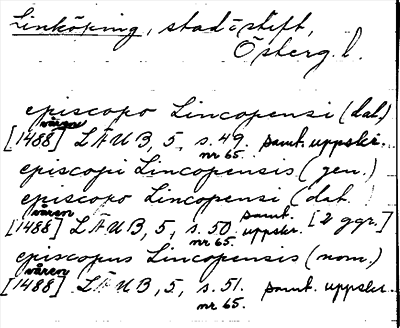 Linköping, stad o stift,
Österg. l.
episcopo Lincopensi (dat.)
våren
[1488] LÄUB, 5, s. 49. samt. uppskr.
nr 65.
episcopi Lincopensis (gen.)
episcopo Lincopensi (dat.
våren
[1488] LÄUB, 5, s. 50. samt. uppskr. [2 ggr.]
nr 65.
episcopus Lincopensis (nom.)
våren
[1488] LÄUB, 5, s. 51. samt. uppskr.
nr 65.